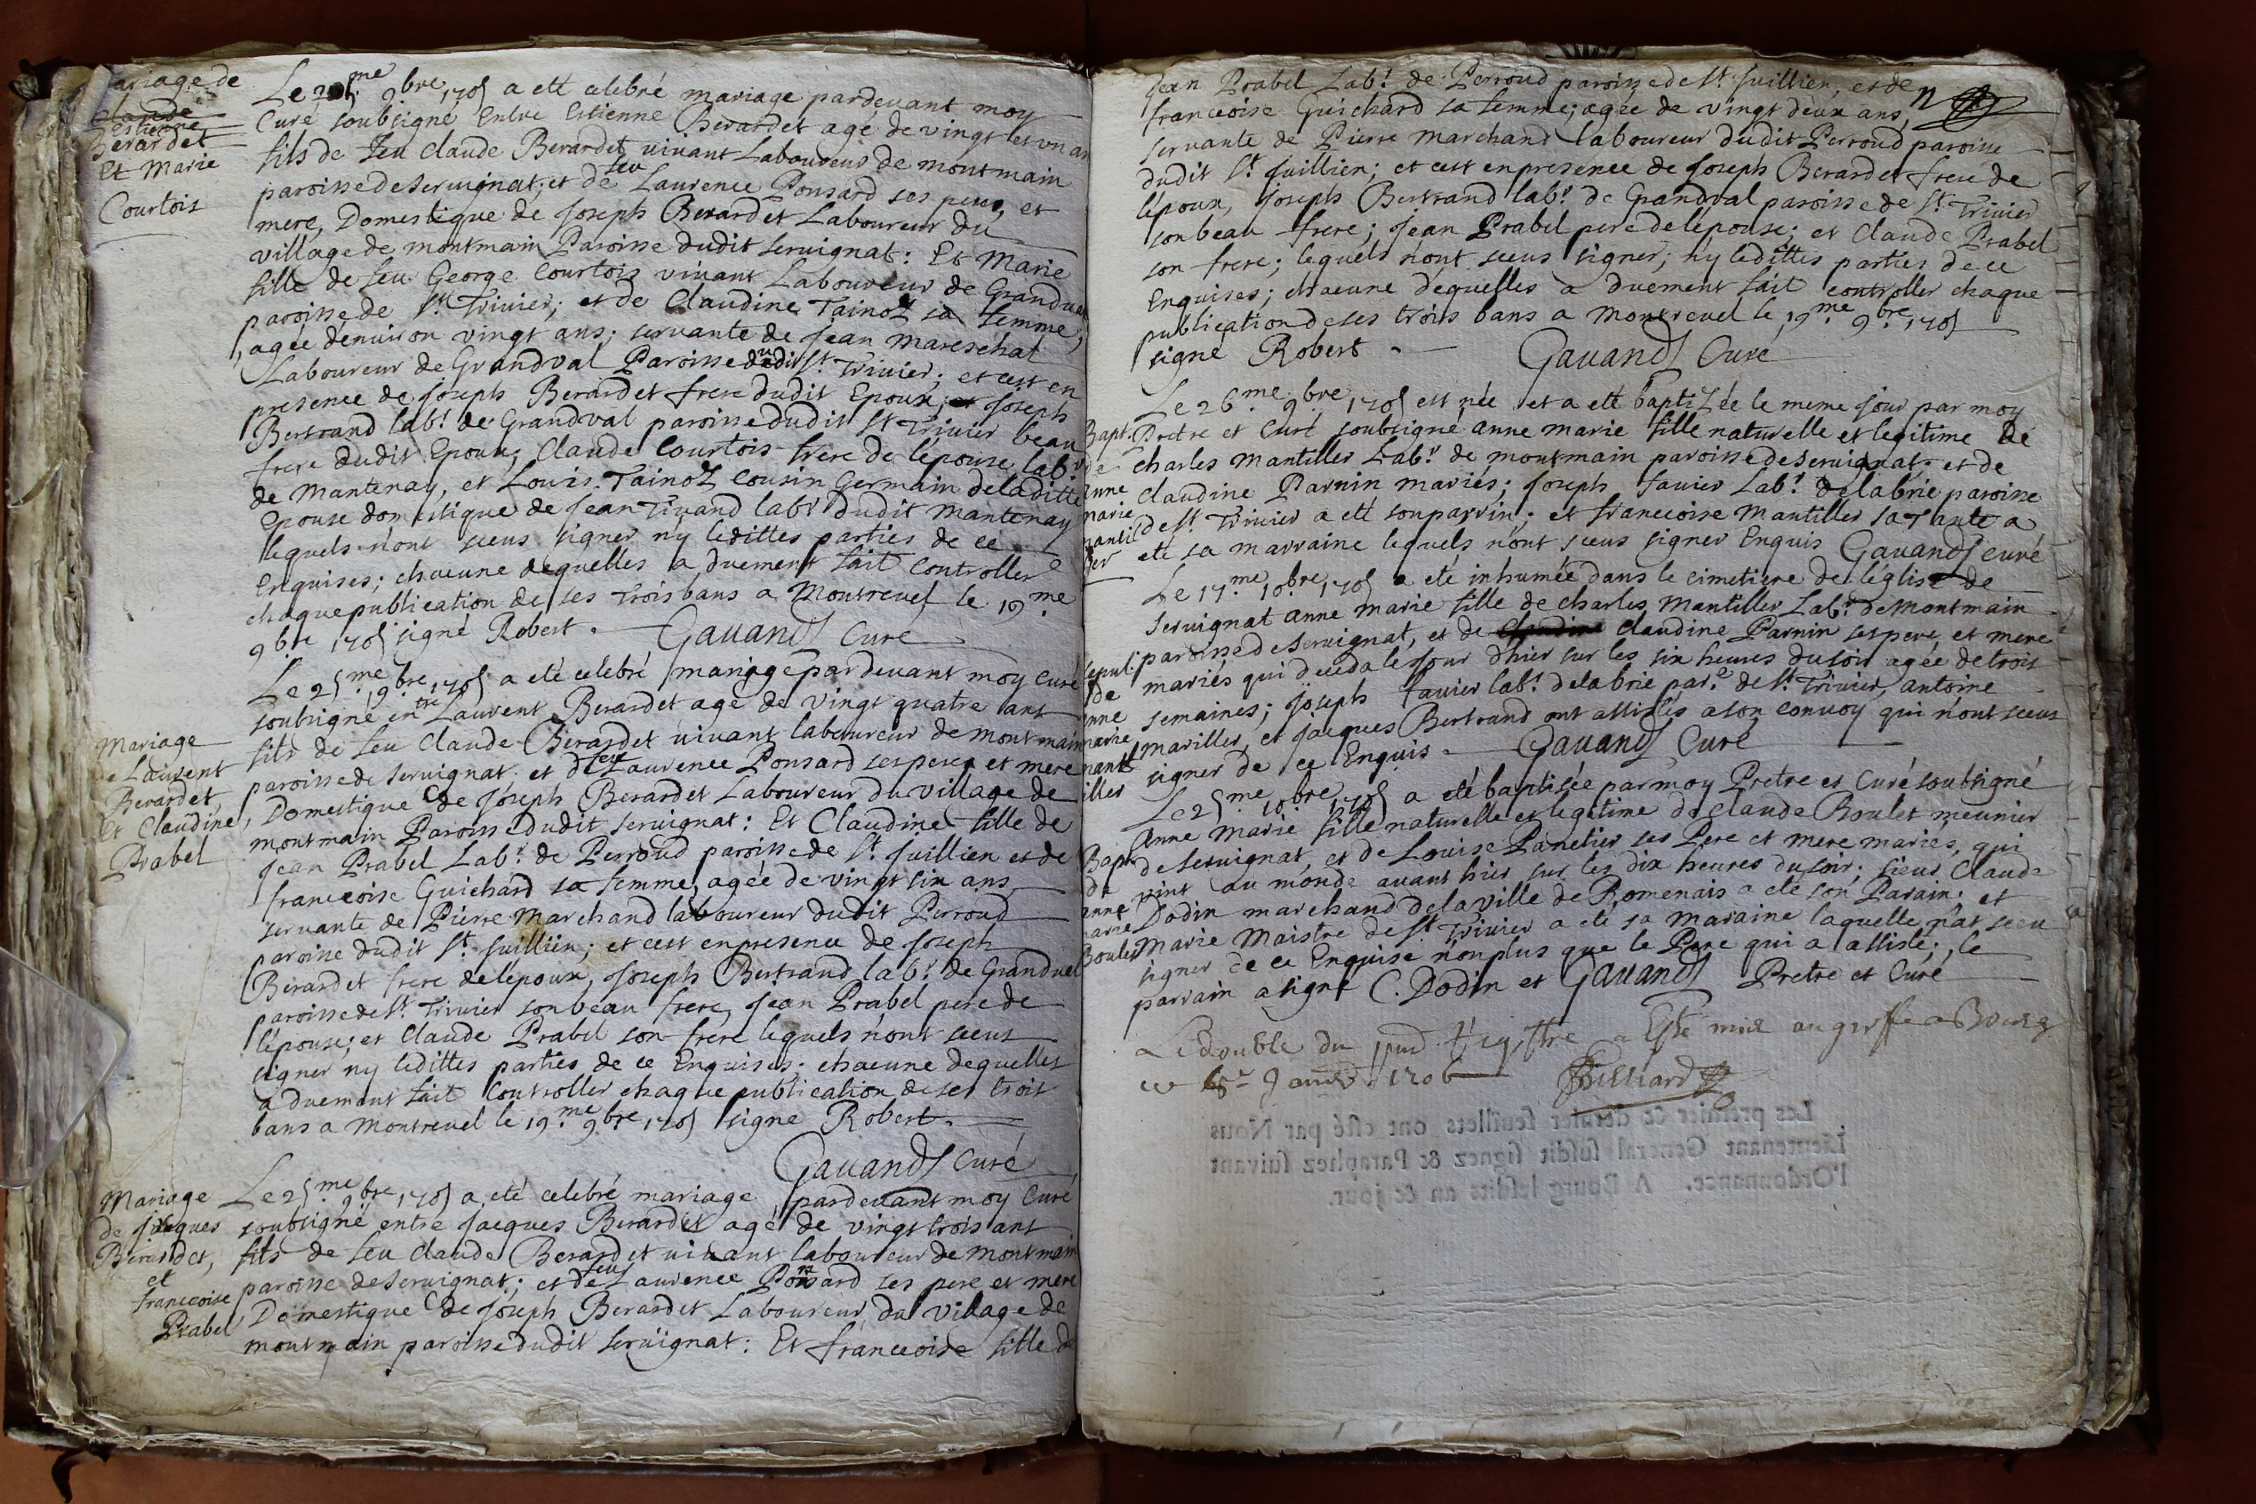 Mariage de
Claude
Estienne
Berardet
Et Marie
Courtois
Le 25me 9bre 1705 a eté celebré mariage pardevant moy
Curé soubsigné Entre Estienne Berardet agé de vingt et un an
fils de feu Claude Berardet vivant Laboureur de montmain
paroisse de servignat; et de feu Laurence Ponsard ses pere, et
mere, Domestique de Joseph Berardet Laboureur du
village de montmain Paroisse dudit servignat: Et Marie
fille de feu George Courtois vivant Laboureur de Grandval
paroisse de St Trivier; et de Claudine Tainoz sa femme,
agée denviron vingt ans; servante de Jean mareschal
Laboureur de Grandval Paroisse dudit St Trivier; et cest en
presence de Joseph Berardet frere dudit Epoux; et Joseph
Bertrand labr de Grandval paroisse dudit St Trivier beau
frere dudit Epoux, Claude Courtois frere de l'épouse labr
de Mantenay, et Louis Tainoz Cousin Germain deladitte
Epouse domestique de Jean Tivand labr dudit Mantenay
lequels n'ont sceus signer n'y ledittes parties de ce
Enquises; chacune dequelles a duement fait controller
chaque publication de ses trois bans a Montrevel le 19me
9bre 1705 signé Robert. Gavand Curé
Mariage
de Laurent
Berardet,
Et Claudine
Prabel
Le 25me 9bre 1705 a eté celebré mariage pardevant moy Curé
soubsigné entre Laurent Berardet agé de vingt quatre ans
fils de feu Claude Berardet vivant laboureur de montmain
paroisse de servignat. et de feu Laurence Ponsard ses pere et mere
, Domestique de Joseph Berardet Laboureur du village de
montmain Paroisse dudit servignat: Et Claudine fille de
Jean Prabel Labr de Perroud paroisse de St Juillien et de
francoise Guichard sa femme, agée de vingt six ans
servante de Pierre Marchand laboureur dudit Perroud
paroisse dudit St Juillien; et cest en presence de Joseph
Berardet frere de lepoux, Joseph Bertrand labr de Grandval
paroisse de St Trivier son beau frere, Jean Prabel pere de
l'épouse; et Claude Prabel son frere lequels n'ont sceus
signer ny ledittes parties de ce Enquises; chacune dequelles
a duement fait Controller chaque publication de ses trois
bans a Montrevel le 19me 9bre 1705 signé Robert.
Gavand Curé
Mariage
de Jacques
Berardet,
et
francoise
Prabel
Le 25me 9bre 1705 a eté celebré mariage pardevant moy Curé
soubsigné entre Jacques Berardet agé de vingt trois ans
fils de feu Claude Berardet vivant laboureur de montmain
paroisse de servignat; et de feu Laurence Ponsard ses pere et mere
Domestique de Joseph Berardet Laboureur du village de
montmain paroisse dudit servignat: Et francoise fille de
Jean Prabel Labr de Perroud paroisse de St Juillien, et de
francoise Guichard sa femme; agée de vingt deux ans,
servante de Pierre Marchand laboureur dudit Perroud paroisse
dudit St Juillien; et cest en presence de Joseph Berardet frere de
lépoux, Joseph Bertrand labr de Grandval paroisse de St Trivier
son beau frere; Jean Prabel pere de lépouse; et Claude Prabel
son frere; lequels n'ont sceus signer, n'y ledittes parties de ce
Enquises; chacune déquelles a duement fait controller chaque
publication de ses trois bans a Montrevel le 19me 9bre 1705
signé Robert. Gavand Curé
Bapt
de
Anne
marie
mantil
ler
Le 26me 9bre 1705 est née et a eté baptizée le meme jour par moy
Pretre et Curé soubsigné anne marie fille naturelle et legitime de
charles Mantiller Labr de montmain paroisse de servignat et de
claudine Parnin mariés; Joseph favier Labr de la brie paroisse
de St Trivier a eté son parrin; et francoise Mantiller sa Tante a
eté sa marraine lequels n'ont sceus signer Enquis Gavand Curé
sepul
de
anne
marie
mant
iller
Le 17me 10bre 1705 a eté inhumée dans le cimetiere de léglise de
servignat anne marie fille de charles Mantiller Labr de Montmain
paroisse de servignat, et de claudine Parnin ses pere et mere
mariés qui deceda le jour d'hier sur les six heures du soir agée de trois
semaines; joseph favier labr de la brie pare de St Trivier, antoine
mariller, et Jacques Bertrand ont assistés a son convoy qui n'ont sceus
signer de ce Enquis. Gavand Curé
Bapt
de
anne
marie
Boulet
Le 25me 10bre 1705 a eté baptisée par moy Pretre et Curé soubsigné
anne marie fille naturelle et legitime de claude Boulet meunier
de servignat, et de Louise Panetier ses Pere et mere mariés, qui
vint au monde avant hier sur les dix heures du soir; sieur Claude
Dodin marchand de la ville de Romenais a eté son Parain; et
Marie Maistre de St Trivier a eté sa maraine laquelle n'at sceu
signer de ce Enquise non plus que le Pere qui a assisté; le
parrain a signé C. Dodin et Gavand Pretre et Curé
Le double du pnt Registre a Esté mis au greffe a Bourg
Janv. 1706 Billiard
Les premier & dernier feuillets ont esté par Nous
Lieutenant General susdit signez & Paraphez suivant
l'Ordonnance. A Bourg lesdits an & jour.